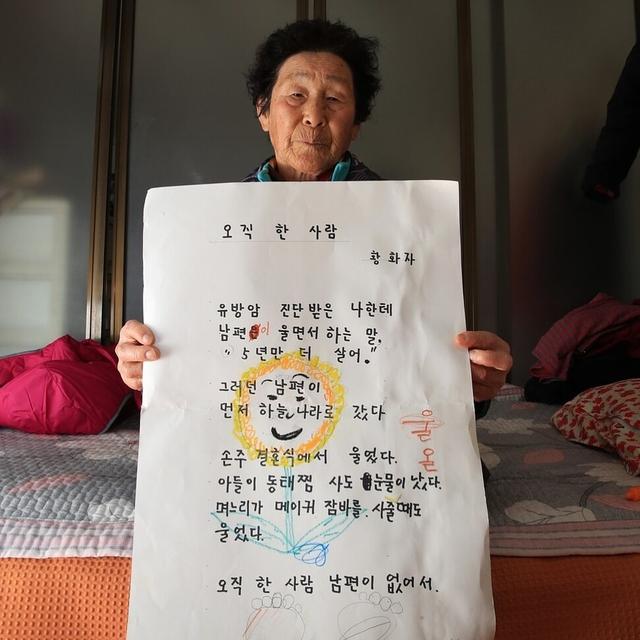 오직 한 사람
황화자
유방암 진단 받은 나한테
남편이 울면서 하는 말,
"5년만 더 살어."
그러던 남편이
먼저 하늘나라로 갔다
손주 결혼식에서 울었다.
아들이 동태찜 사도 눈물이 났다.
며느리가 메이커 잠바를 사줄때도
울었다.
오직 한 사람 남편이 없어서.